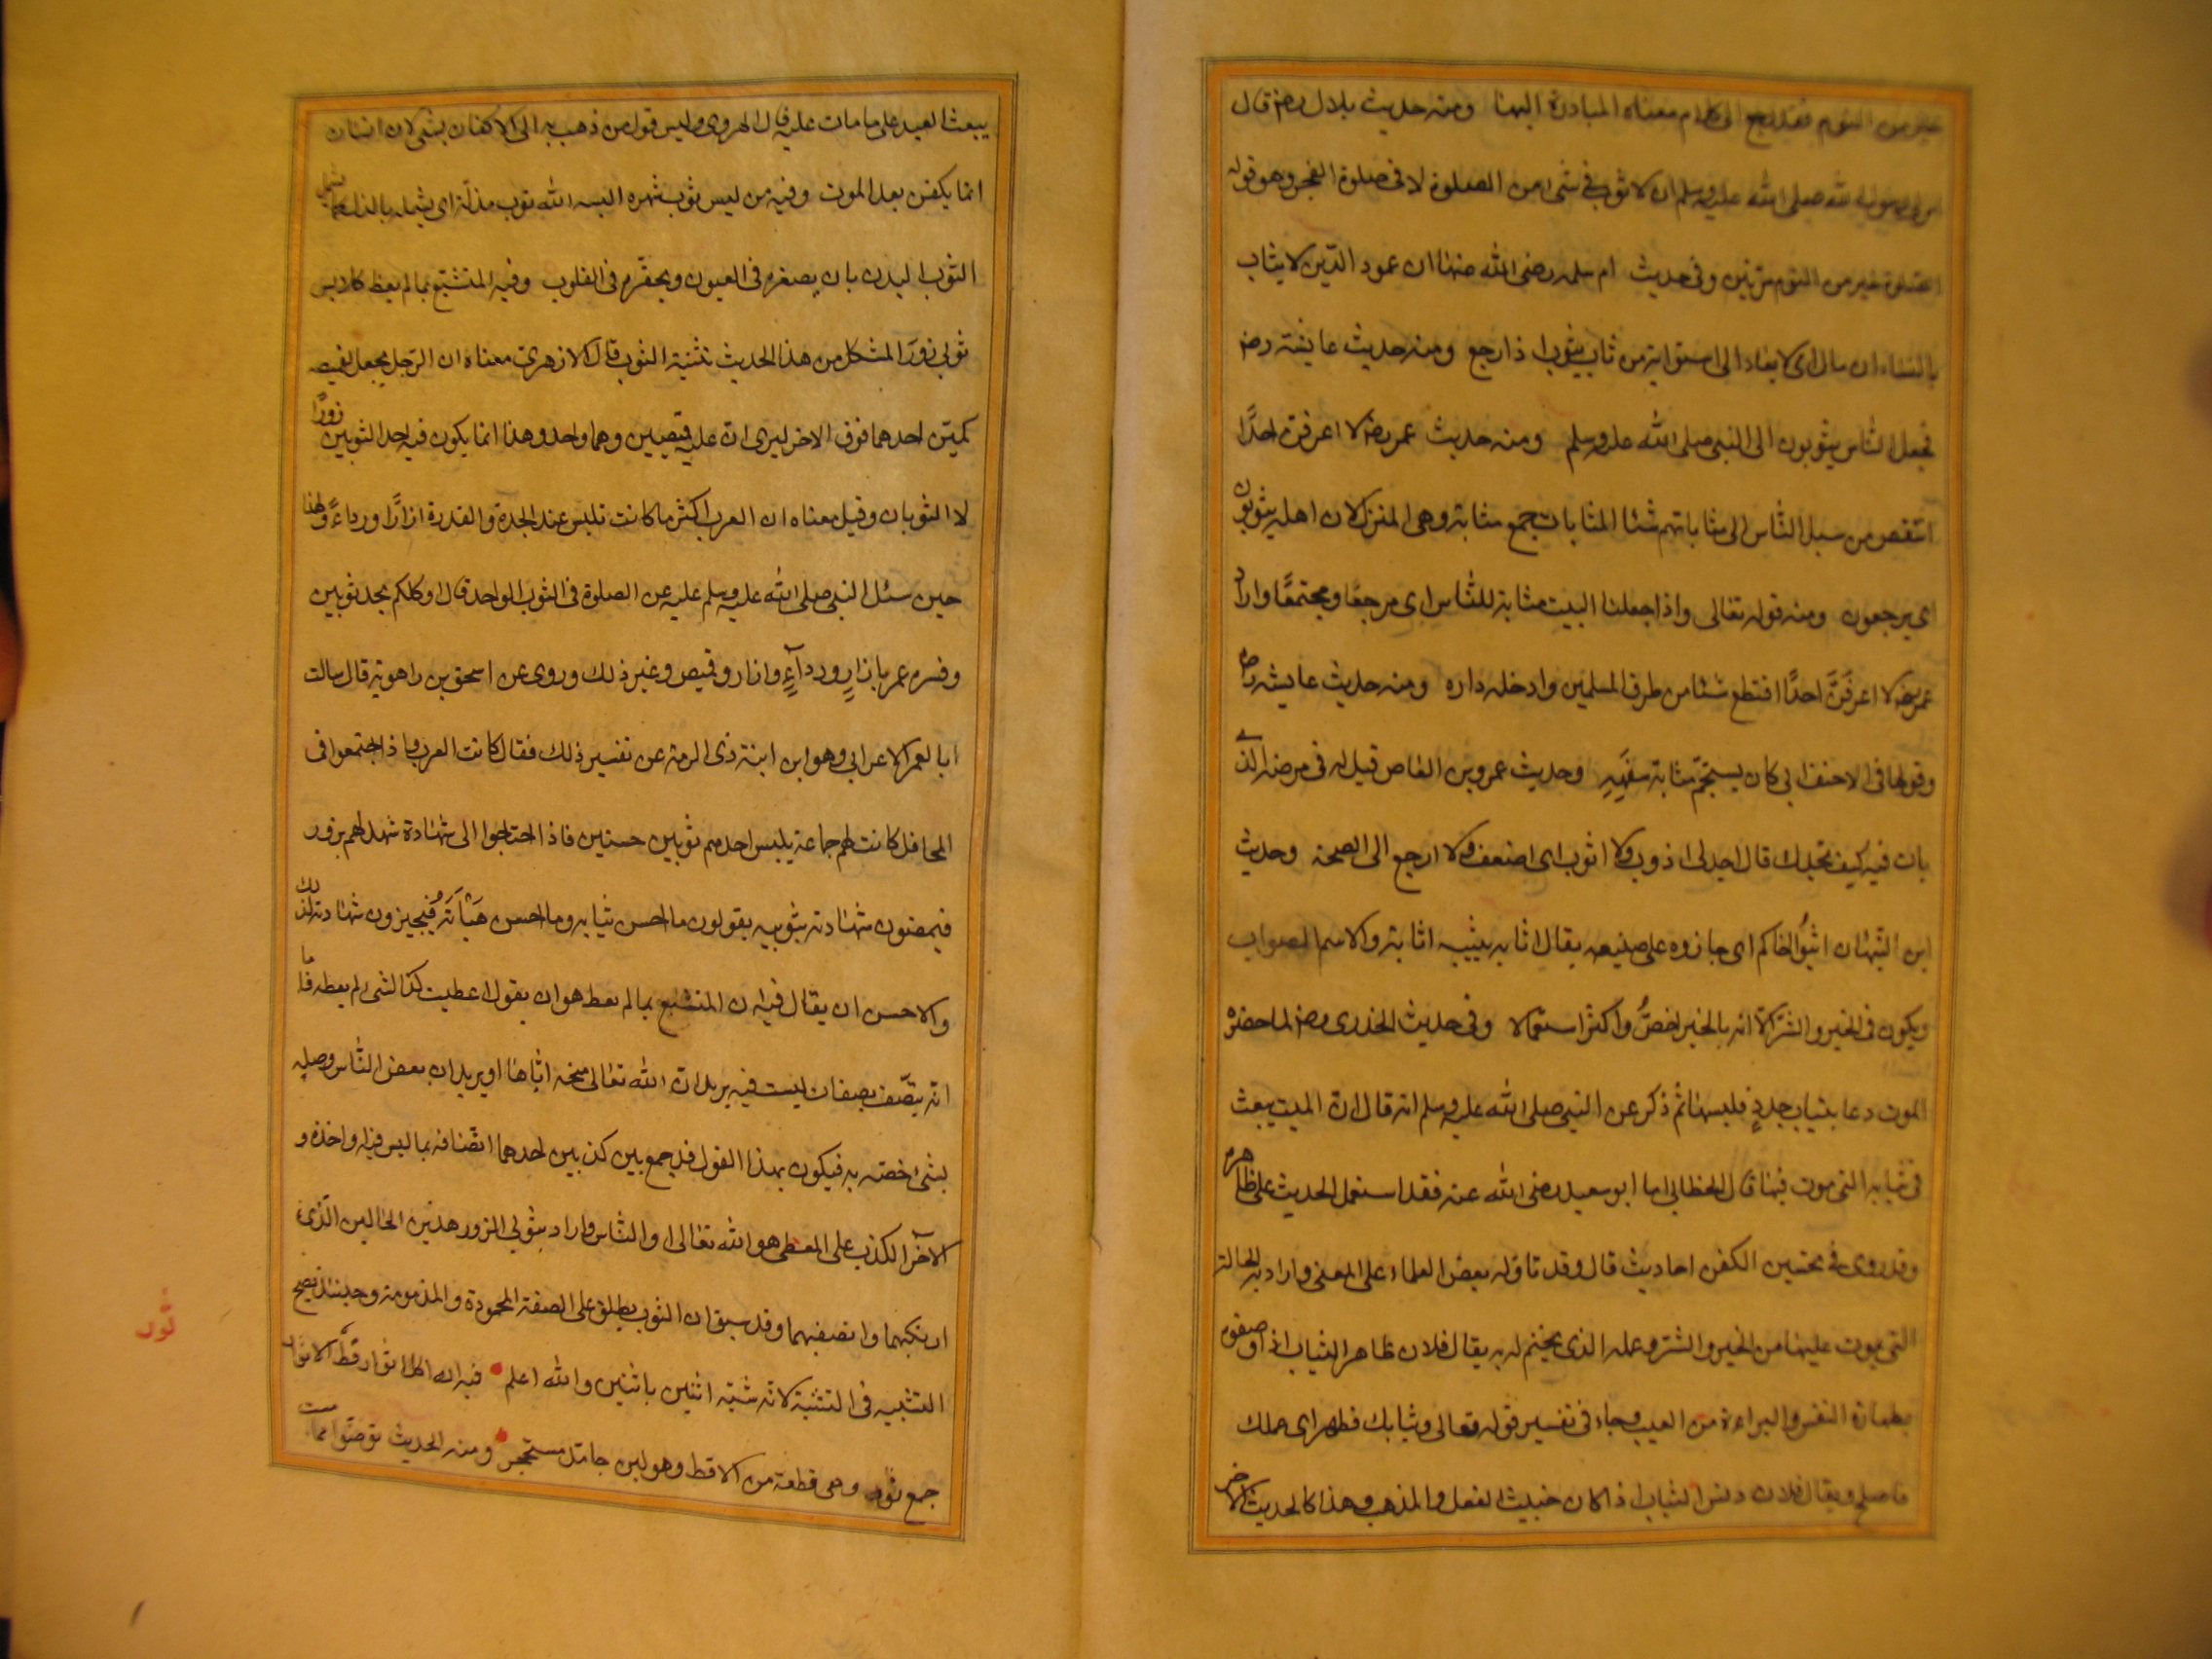 خير من النوم فقد رجع الى كلام معناه المبادرة اليها ومنه حديث بلال رضه قال
امرنى رسول الله صلى الله عليه وسلم ان لا اثوب فى شىء من الصلوة الا فى صلوة الفجر وهو قوله
الصلوة خير من النوم مرتين وفى حديث ام سلمه رضى الله عنها ان عمود الدّين لا يثاب
بالنساء ان مال اى لا يعاد الى استوائه من ثاب يثوب اذا رجع ومنه حديث عايشة رضه
فجعل النّاس يثوبون الى النبى صلى الله عليه وسلم ومنه حديث عمر رضه لا اعرفن احدًا
انتقص من سبل النّاس الى مثاباتهم شئا المثابات جمع مثابة وهى المنزل لان اهله يثوبون
اى يرجعون ومنه قوله تعالى واذ جعلنا البيت مثابة للنّاس اى مرجعًا ومجتمعًا واراد
عمر رضه لا اعرفَنَّ احدًا اقتطع شئا من طرق المسلمين وادخله داره ومنه حديث عايشه رضه
وقولها فى الاحنف ابى كان يستجمّ مثابة سفهِهِ وحديث عمرو بن العاص قيل له فى مرضه الذى
مات فيه كيف تجدك قال اجدنى اذوب ولا اثوب اى اضعف ولا ارجع الى الصحة وحديث
ابن التّيهان اثيبُوا اخاكم اى جازوه على صنيعه يقال اثابه يثيبه اثابة والاسم الثواب
ويكون فى الخير والشرّ الا انه بالخير اخصُّ واكثر استعمالا وفى حديث الخدرى رضه لما حضره
الموت دعا بثياب جددٍ فلبسها ثم ذكر عن النبى صلى الله عليه وسلم انه قال ان الميت يبعث
فى ثيابه التى يموت فيها قال الخطابى اما ابو سعيد رضى الله عنه فقد استعمل الحديث على ظاهره
وقد روى فى تحسين الكفن احاديث قال وقد تاوّله بعض العلماء على المعنى واراد به الحالة
التى يموت عليها من الخير والشرّ وعمله الذى يختم له به يقال فلان ظاهر الثياب اذا وصفوه
بطهارة النفس والبراءة من العيب وجاء فى تفسير قوله تعالى وثيابك فطهر اى عملك
فاصلح ويقال فلان دنس الثياب اذا كان خبيث الفعل والمذهب وهذا كالحديث الاخر
يبعث العبد على ما مات عليه قال الهروى وليس قول من ذهب به الى الاكفان بشىء لان انسان
انما يكفن بعد الموت وفيه من لبس ثوب شهره البسه الله ثوب مذلّة اى يشمله بالذل كما يشمل
الثوب البدن بان يصغره فى العيون ويحقره فى القلوب وفيه المتشبّع بما لم يعط كلابس
ثوبى زورٍ المشكل من هذا الحديث تثنية الثوب قال الازهرى معناه ان الرّجل يجعل لقميصه
كمّين احدهما فوق الاخر ليرى ان عليه قميصين وهما واحد وهذا انما يكون فيه احد الثوبين زورًا
لا الثوبان وقيل معناه ان العرب اكثر ما كانت تلبس عند الجدة والقدرة ازارًا ورداءً ولهذا
حين سئل النبى صلى الله عليه وسلم عليه عن الصلوة فى الثوب الواحد قال اوكلكم يجد ثوبين
وفسره عمر بازارٍ ورداءٍ وازار وقميص وغير ذلك وروى عن اسحق بن راهوية قال سالت
ابا الغمر الاعرابى وهو ابن ابنة ذى الرمة عن تفسير ذلك فقال كانت العرب اذا اجتمعوا فى
المحافل كانت لهم جماعة يلبس احدهم ثوبين حسنين فاذا احتاجوا الى شهادة شهد لهم بزور
فيمضون شهادته بثوبيه يقولون ما احسن ثيابه وما احسن هَيْأَتَهُ فيجيزون شهادته لذلك
والاحسن ان يقال فيه ان المتشبع بما لم يعط هو ان يقول اعطيت كذا لشىء لم يعطه فاما
انه يتّصف بصفات ليست فيه يريد ان الله تعالى منحه اياها او يريد ان بعض النّاس وصله
بشىء خصّه به فيكون بهذا القول قد جمع بين كذبين احدهما اتّصافه بما ليس فيه او اخذه و
الآخر الكذب على المعطى هو الله تعالى او النّاس واراد بثوبى الزور هذين الحالين الّذى
ارتكبهما واتصف بهما وقد سبق ان الثوب يطلق على الصفة المحمودة والمذمومة وحينئذ يصح
التشبيه فى التثنية لانه شبّه اثنين باثنين والله اعلم فيه انه اكل اثوار قط الاثوار
جمع ثور وهى قطعة من الاقط وهو لبن جامد مستحجر ومنه الحديث توضّوا مما مست
ثور